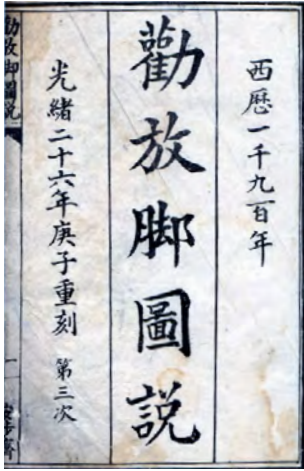 西歷一千九百年
勸放脚圖說
光緒二十六年庚子重刻 第三次
勸放脚圖說
一